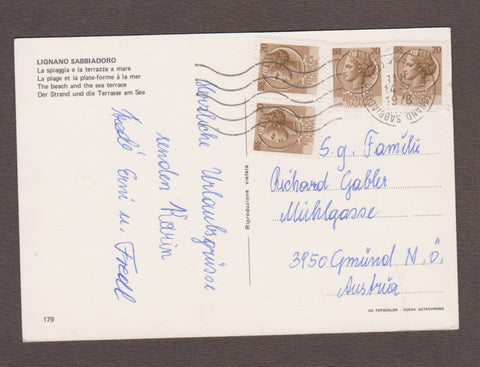 LIGNANO SABBIADORO
La spiaggia e la terrazza a mare
La plage et la plate-forme à la mer
The beach and the sea terrace
Der Strand und die Terrasse am See
Herzliche Urlaubsgrüsse
senden Karin
Erni u. Fredl
179
Riproduzione vietata
S.g. Familie
Richard Gabler
Mühlgasse
3950 Gmünd N.Ö.
Austria
DA FOTOCOLOR - KODAK EKTACHROME
20
20
LIGNANO SABBIADORO